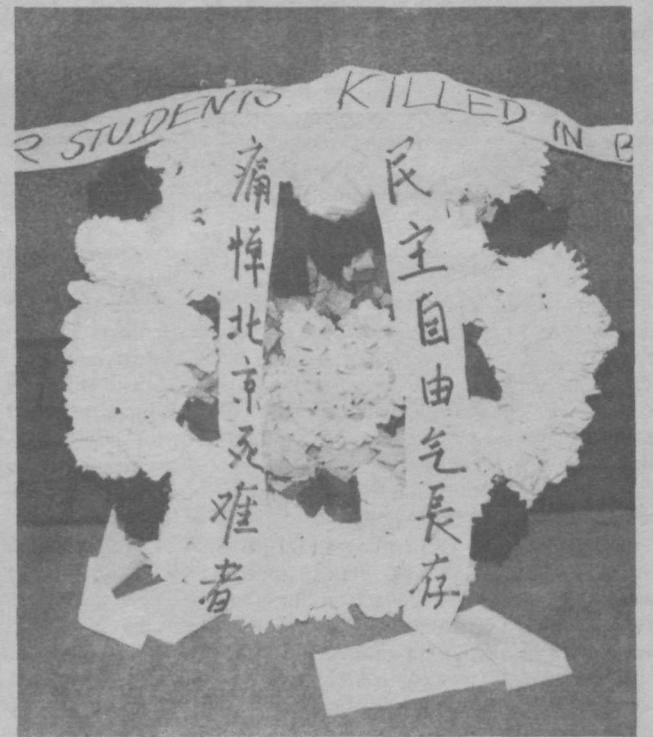 R STUDENTS KILLED IN B
民主自由气長存
痛悼北京死难者